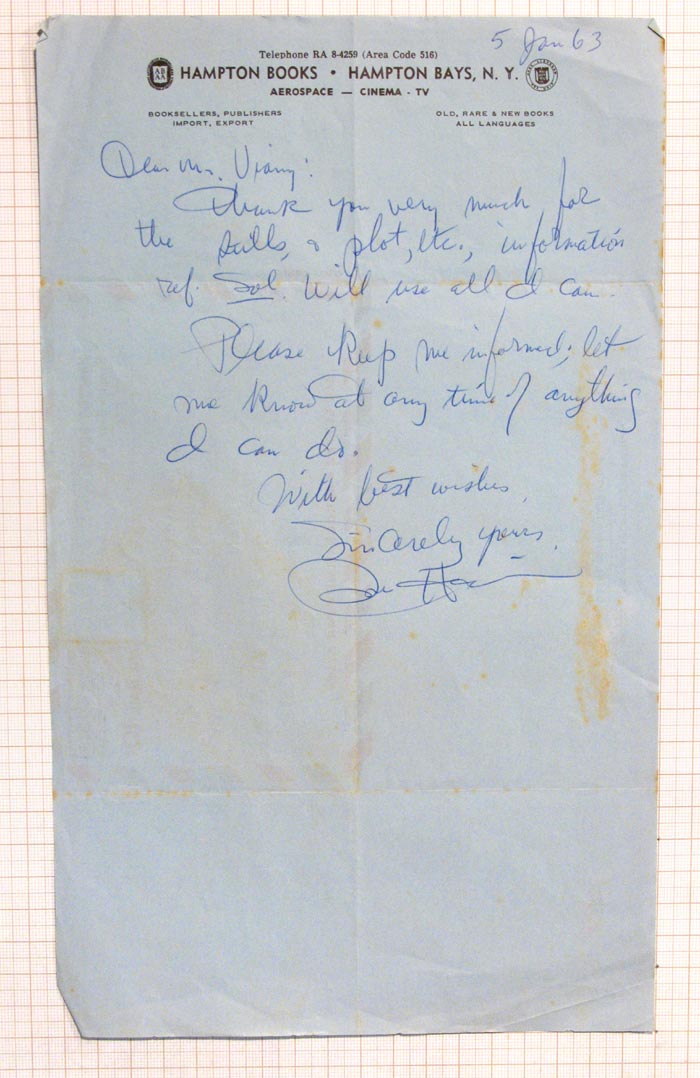 5 Jan 63
Telephone RA 8-4259 (Area Code 516)
HAMPTON BOOKS • HAMPTON BAYS, N. Y.
AEROSPACE — CINEMA - TV
BOOKSELLERS, PUBLISHERS
IMPORT, EXPORT
OLD, RARE & NEW BOOKS
ALL LANGUAGES
Dear Mr. Viany:
Thank you very much for
the stills, & plot, etc., information
ref. Sol. Will use all I can.
Please keep me informed; let
me know at any time of anything
I can do.
With best wishes,
Sincerely yours,